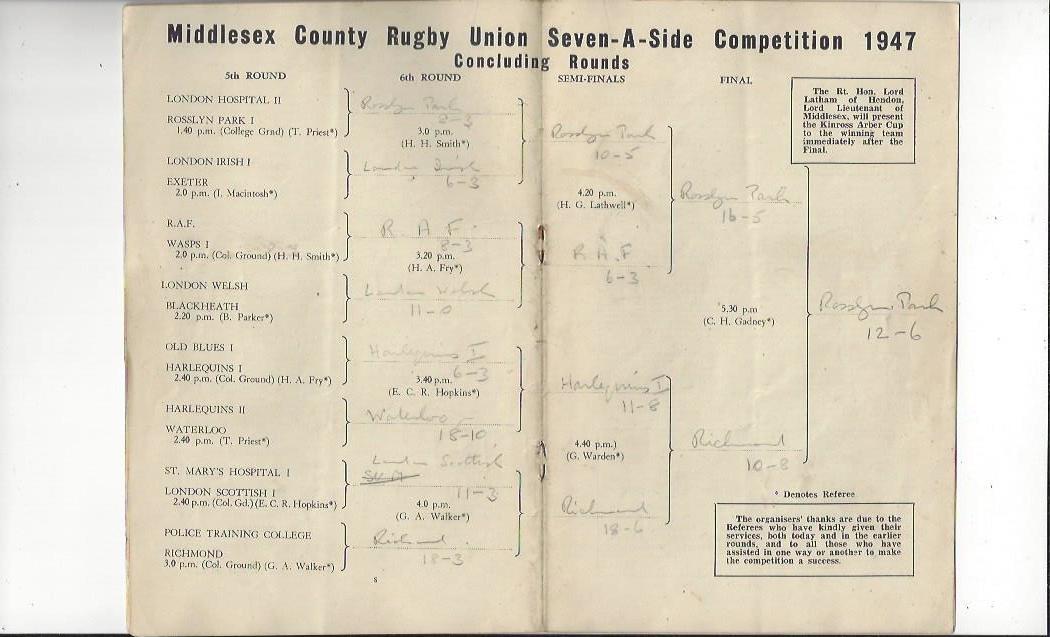 Middlesex County Rugby Union Seven-A-Side Competition 1947
Concluding Rounds
5th ROUND
LONDON HOSPITAL II
ROSSLYN PARK I
1.40 p.m. (College Grnd) (T. Priest*)
LONDON IRISH I
EXETER
2.0 p.m. (I. Macintosh*)
R.A.F.
WASPS I
2.0 p.m. (Col. Ground) (H. H. Smith*)
LONDON WELSH
BLACKHEATH
2.20 p.m. (B. Parker*)
OLD BLUES I
HARLEQUINS I
2.40 p.m. (Col. Ground) (H. A. Fry*)
HARLEQUINS II
WATERLOO
2.40 p.m. (T. Priest*)
ST. MARY'S HOSPITAL I
LONDON SCOTTISH I
2.40 p.m. (Col. Gd.) (E. C. R. Hopkins*)
POLICE TRAINING COLLEGE
RICHMOND
3.0 p.m. (Col. Ground) (G. A. Walker*)
8
6th ROUND
Rosslyn Park
8-3
3.0 p.m.
(H. H. Smith*)
London Irish
6-3
R. A F.
8-3
3.20 p.m.
(H. A. Fry*)
London Welsh
11-0
Harlequins I
6-3
3.40 p.m.
(E. C. R. Hopkins*)
Waterloo
18-10
London Scottish
11-3
4.0 p.m.
(G. A. Walker*)
Richmond
18-3
SEMI-FINALS
Rosslyn Park
10-5
4.20 p.m.
(H. G. Lathwell*)
R.A.F
6-3
Harlequins I
11-8
4.40 p.m.)
(G. Warden*)
Richmond
18-6
FINAL
Rosslyn Park
16-5
5.30 p.m
(C. H. Gadney*)
Richmond
10-8
Rosslyn Park
12-6
The Rt. Hon. Lord
Latham of Hendon,
Lord Lieutenant of
Middlesex, will present
the Kinross Arber Cup
to the winning team
immediately after the
Final.
* Denotes Referee
The organisers' thanks are due to the
Referees who have kindly given their
services, both today and in the earlier
rounds, and to all those who have
assisted in one way or another to make
the competition a success.